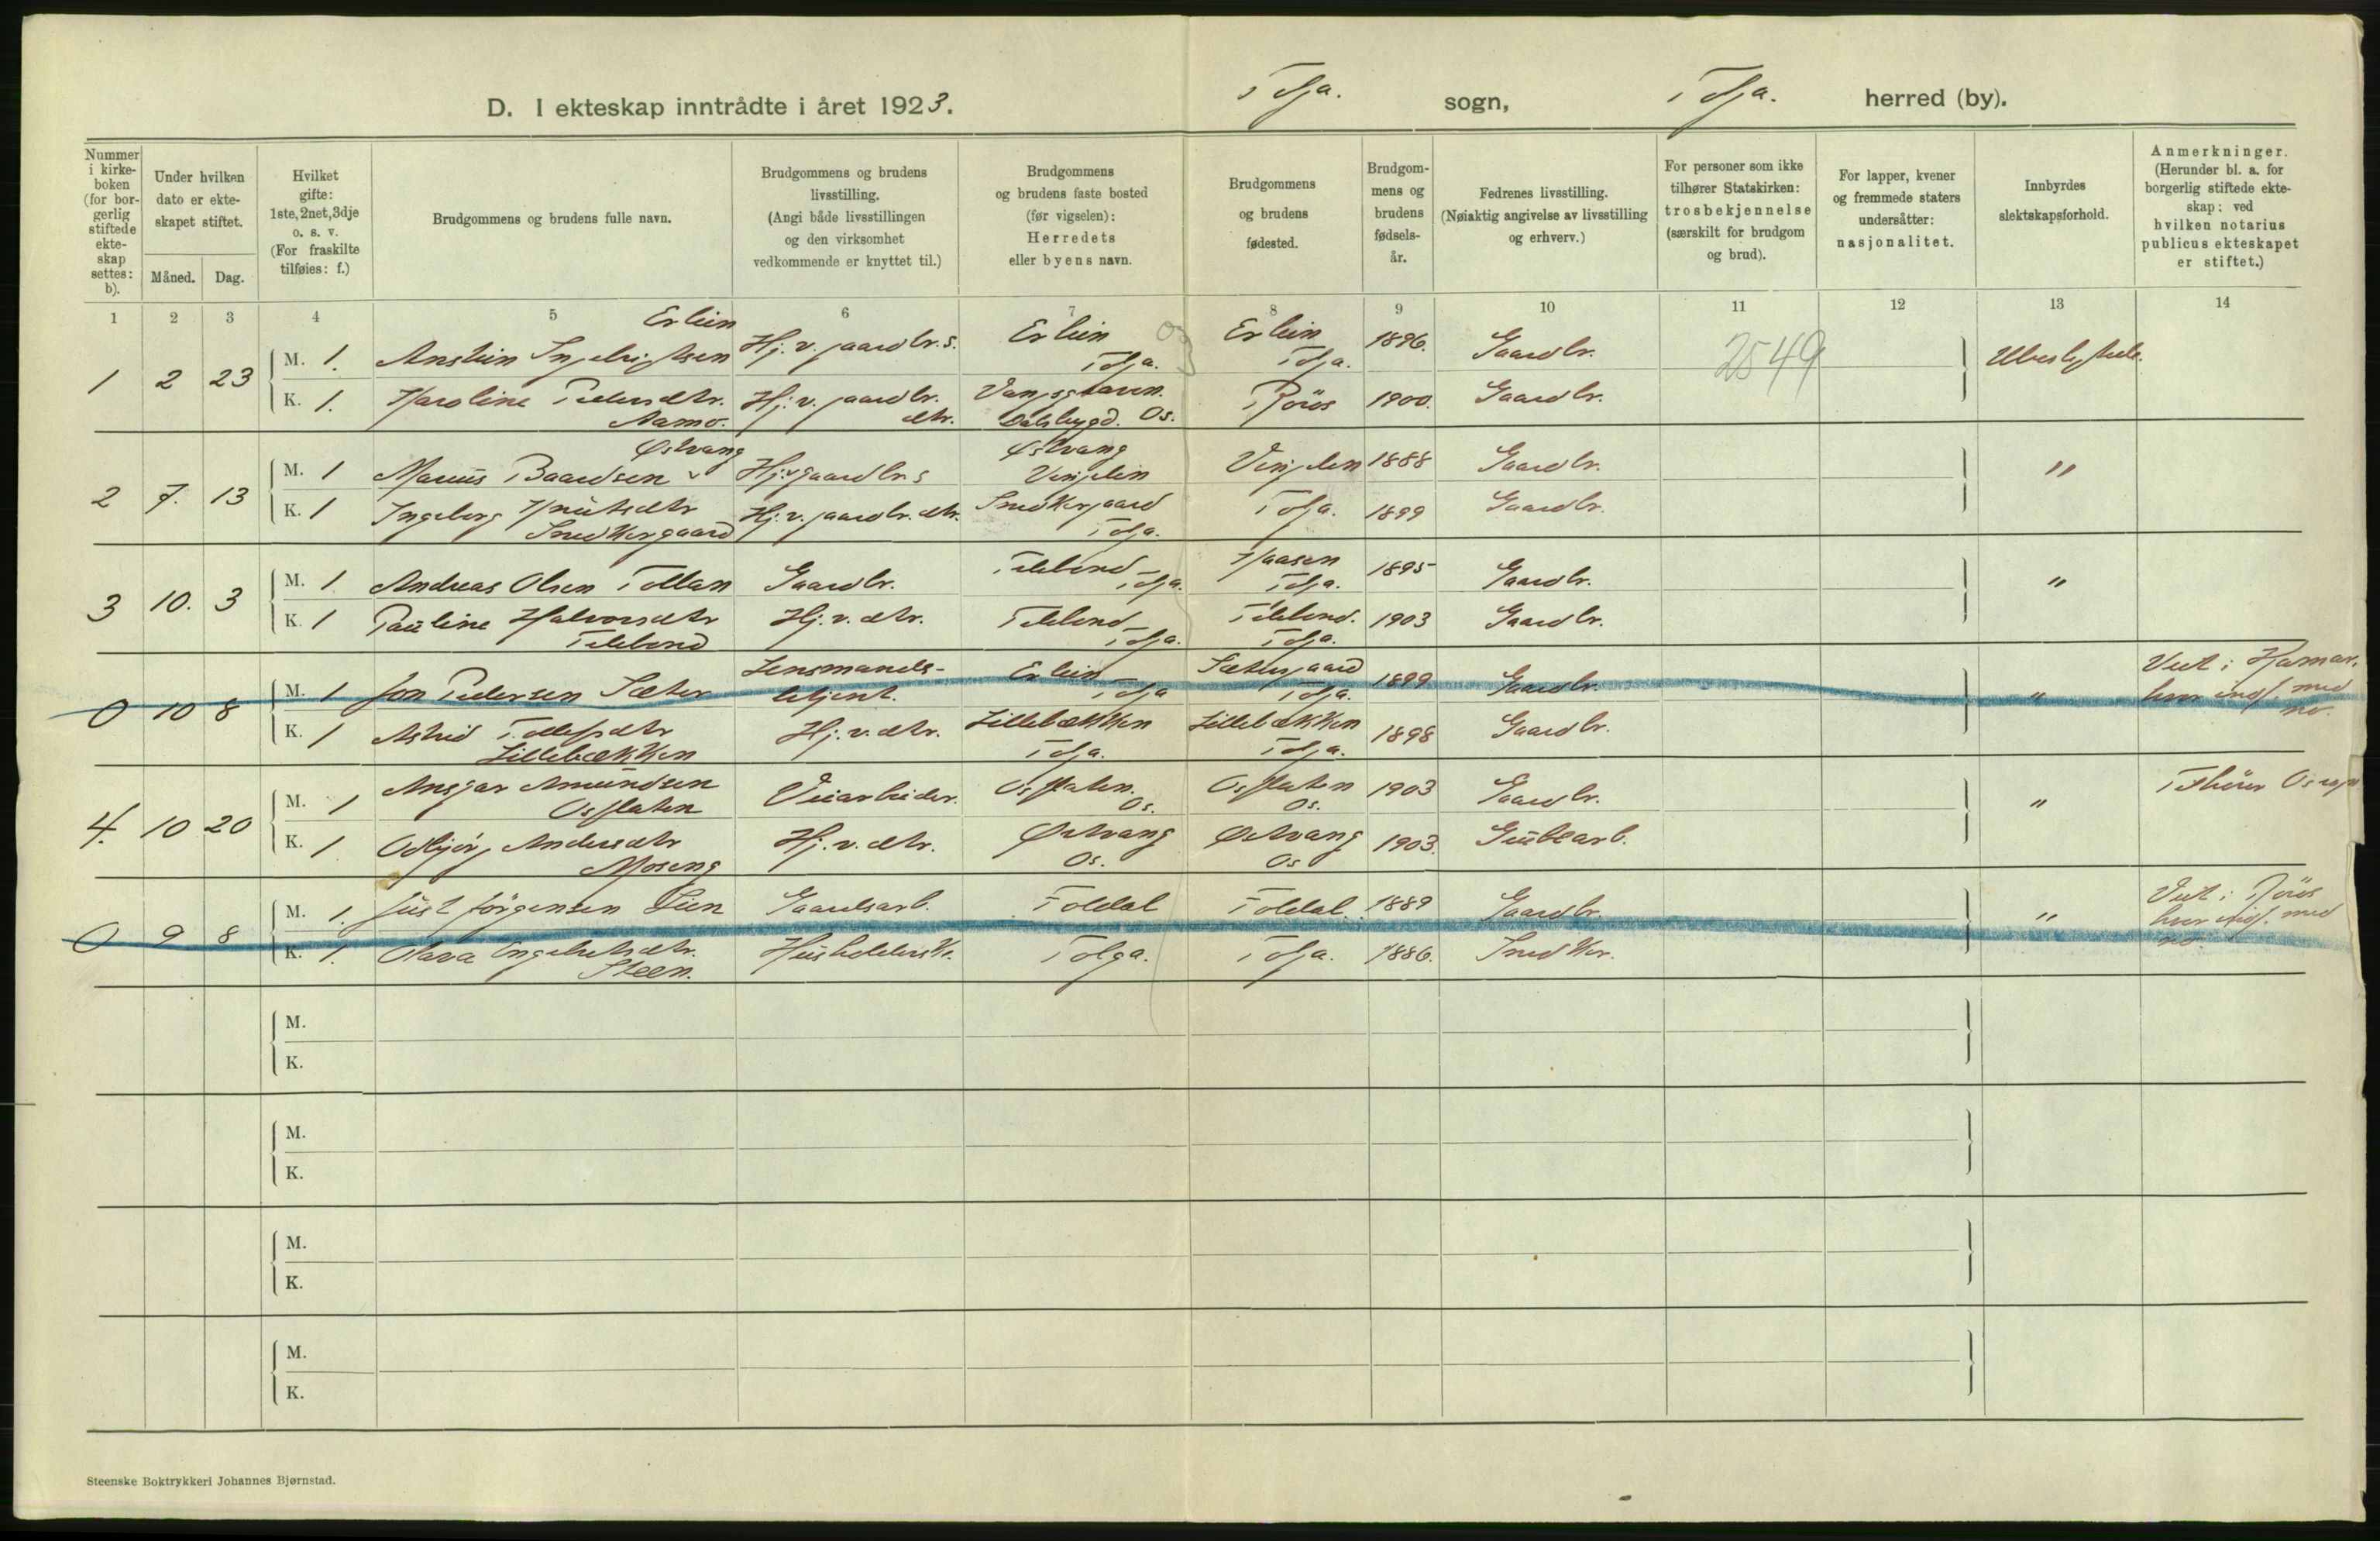 D. I ekteskap inntrådte i året 1923.
Tolga. sogn, Tolga. herred (by).
Nummer i kirke-boken (for bor-gerlig stiftede ekte-skap settes: b).
Under hvilken dato er ekte-skapet stiftet.
Måned. Dag.
Hvilket gifte: 1ste, 2net, 3dje o. s. v. (For fraskilte tilføies: f.)
Brudgommens og brudens fulle navn.
Brudgommens og brudens livsstilling. (Angi både livsstillingen og den virksomhet vedkommende er knyttet til.)
Brudgommens og brudens faste bosted (før vigselen): Herredets eller byens navn.
Brudgommens og brudens fødested.
Brudgom-mens og brudens fødsels-år.
Fedrenes livsstilling. (Nøiaktig angivelse av livsstilling og erhverv.)
For personer som ikke tilhører Statskirken: trosbekjennelse (særskilt for brudgom og brud).
For lapper, kvener og fremmede staters undersåtter: nasjonalitet.
Innbyrdes slektskapsforhold.
Anmerkninger. (Herunder bl. a. for borgerlig stiftede ekte-skap: ved hvilken notarius publicus ekteskapet er stiftet.)
1 2 3 4 5 6 7 8 9 10 11 12 13 14
Erlien
1 2 23 M. 1. Anstein Ingebrigtsen Hj. v. gaardbr. s. Erlien Tolga. Erlien Tolga. 1896. Gaardbr. 2549
K. 1. Karoline Pedersdtr. Hj. v. gaardbr. dtr. Dalsbygd. Os. Røros 1900. Gaardbr.
Østvang
2 7. 13 M. 1 Marius Baardsen Hj. v. gaardbr. s Østvang Vingelen Vingelen 1888 Gaardbr. "
K. 1 Ingeborg Knutsdtr Snedkergaard Hj. v. gaardbr. dtr. Snedkergaard Tolga. Tolga. 1899 Gaardbr.
3 10. 3 M. 1 Andreas Olsen Tollan Gaardbr. Tolga. Tolga. 1895 Gaardbr. "
K. 1 Pauline Halvorsdtr Hj. v. dtr. Tolga. Tolga. 1903 Gaardbr.
0 10 8 M. 1 Jon Pedersen Sæter Lensmands-betjent. Erlien Tolga Sætersgaard Tolga. 1899 Gaardbr. " Viet i Hamar, hvor indf. med no.
K. 1 Astrid Tollefsdtr Lillebækken Hj. v. dtr. Lillebækken Tolga. Lillebækken Tolga. 1898 Gaardbr.
4. 10 20 M. 1 Ansgar Amundsen Osflaten Veiarbeider. Osflaten. Os. Osflaten Os. 1903 Gaardbr. "
K. 1 Oddbjørg Andersdtr Moseng Hj. v. dtr. Østvang Os. Østvang Os 1903. Grubearb.
0 9 8 M. 1. Just Jørgensen Lien Gaardsarb. Toldal Toldal. 1889 Gaardbr. " Viet i Røros hvor indf. med no.
K. 1. Olava Engebretsdtr. Steen. Husholderske. Tolga. Tolga. 1886. Snedker.
M.
K.
M.
K.
M.
K.
M.
K.
Steenske Boktrykkeri Johannes Bjørnstad.